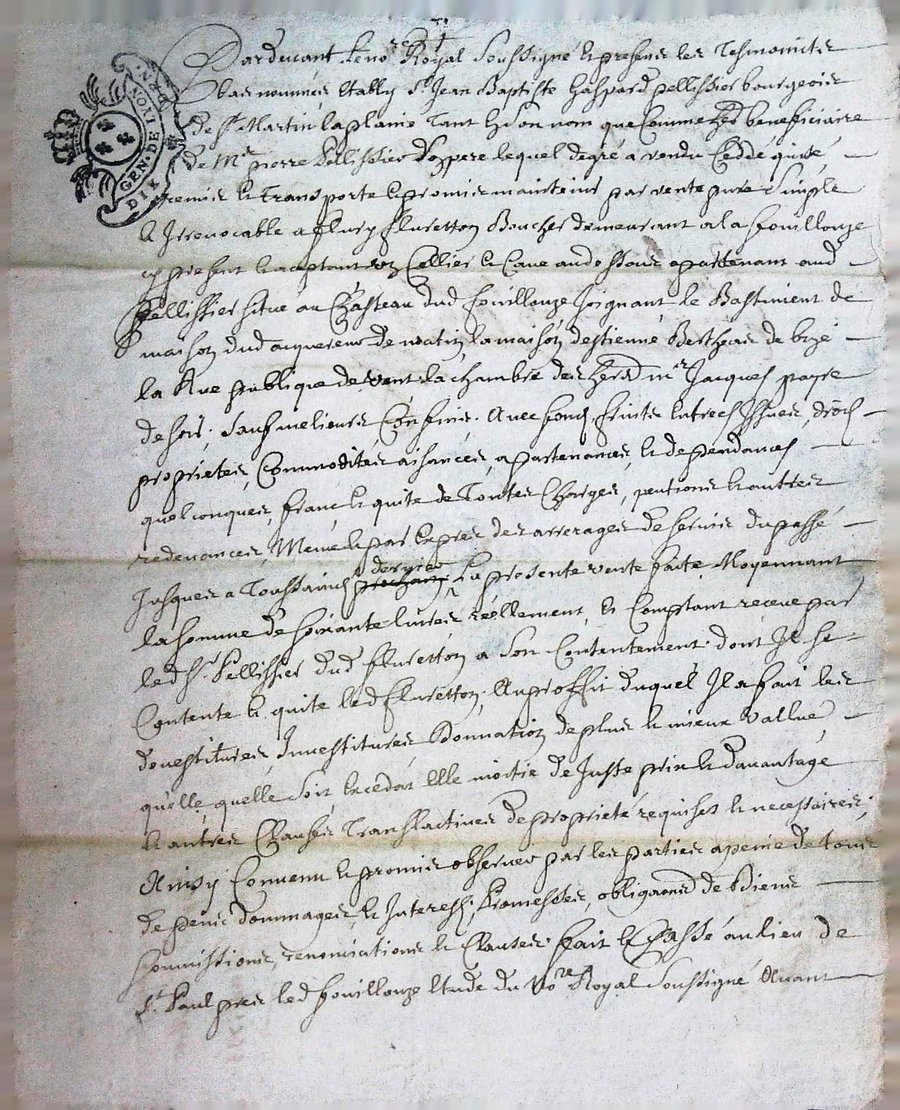 GEN. DE LION
DIX
Pardevant le no.re Royal Soussigné et presens les Tesmoincts
bas nommes Estably Sr. Jean Baptiste Gaspard pellissier bourgeois
de St. Martin laplaine Tant En son nom que Comme hered. beneficiaire
de Mre. pierre Pellissier lequel degré a vendu Ceddé quitté
remis et transporte et promis maintenir par vente pure Simple
et Irrevocable a fleury fluretton Boucher demeurant a la fouillouze
cy present et aceptant un Cellier et Cave audessous apartenant aud
Pellissier situé au Chasteau dud fouillouze Joignant le Bastiment de
maison dud acquereur de matin la maison destienne Bertheas de bize
la Rue publique de vent la chambre des hered mr. Jacques payre
de soir, sauf melieurs Confins. Avec fond fruits Entrees Issues, droits
proprietes, Commodités aisances, apartenances, et dependances
quelconques, franc et quite de Toutes Charges, pentions et autres
redevances, Meme et par Expres des arrerages de servis du passé
Jusques a Toussaincts prochain dernier La presente vente faite Moyennant
la somme de soixante livres reellement et Comptant receue par
led Sr. Pellissier dud fluretton a Son Contentement dont Il se
Contente et quite led fluretton, Au proffit duquel Il a fait les
devestitures, Investitures Donnation de plus et mieux vallue
quelle quelle soit Excedat Elle moitie de Juste prix et davantage
et autres Clauses Translactives de proprieté requises et necessaires,
Ainsy Convenu et promis observer par les parties a peine de tous
depens dommages, et Interests, Promesses, obligaons de Biens
soumissions, renonciations et Clauses fait et Passé au lieu de
St. Paul pres led fouillouze Etude du No.re Royal Soussigné Avant